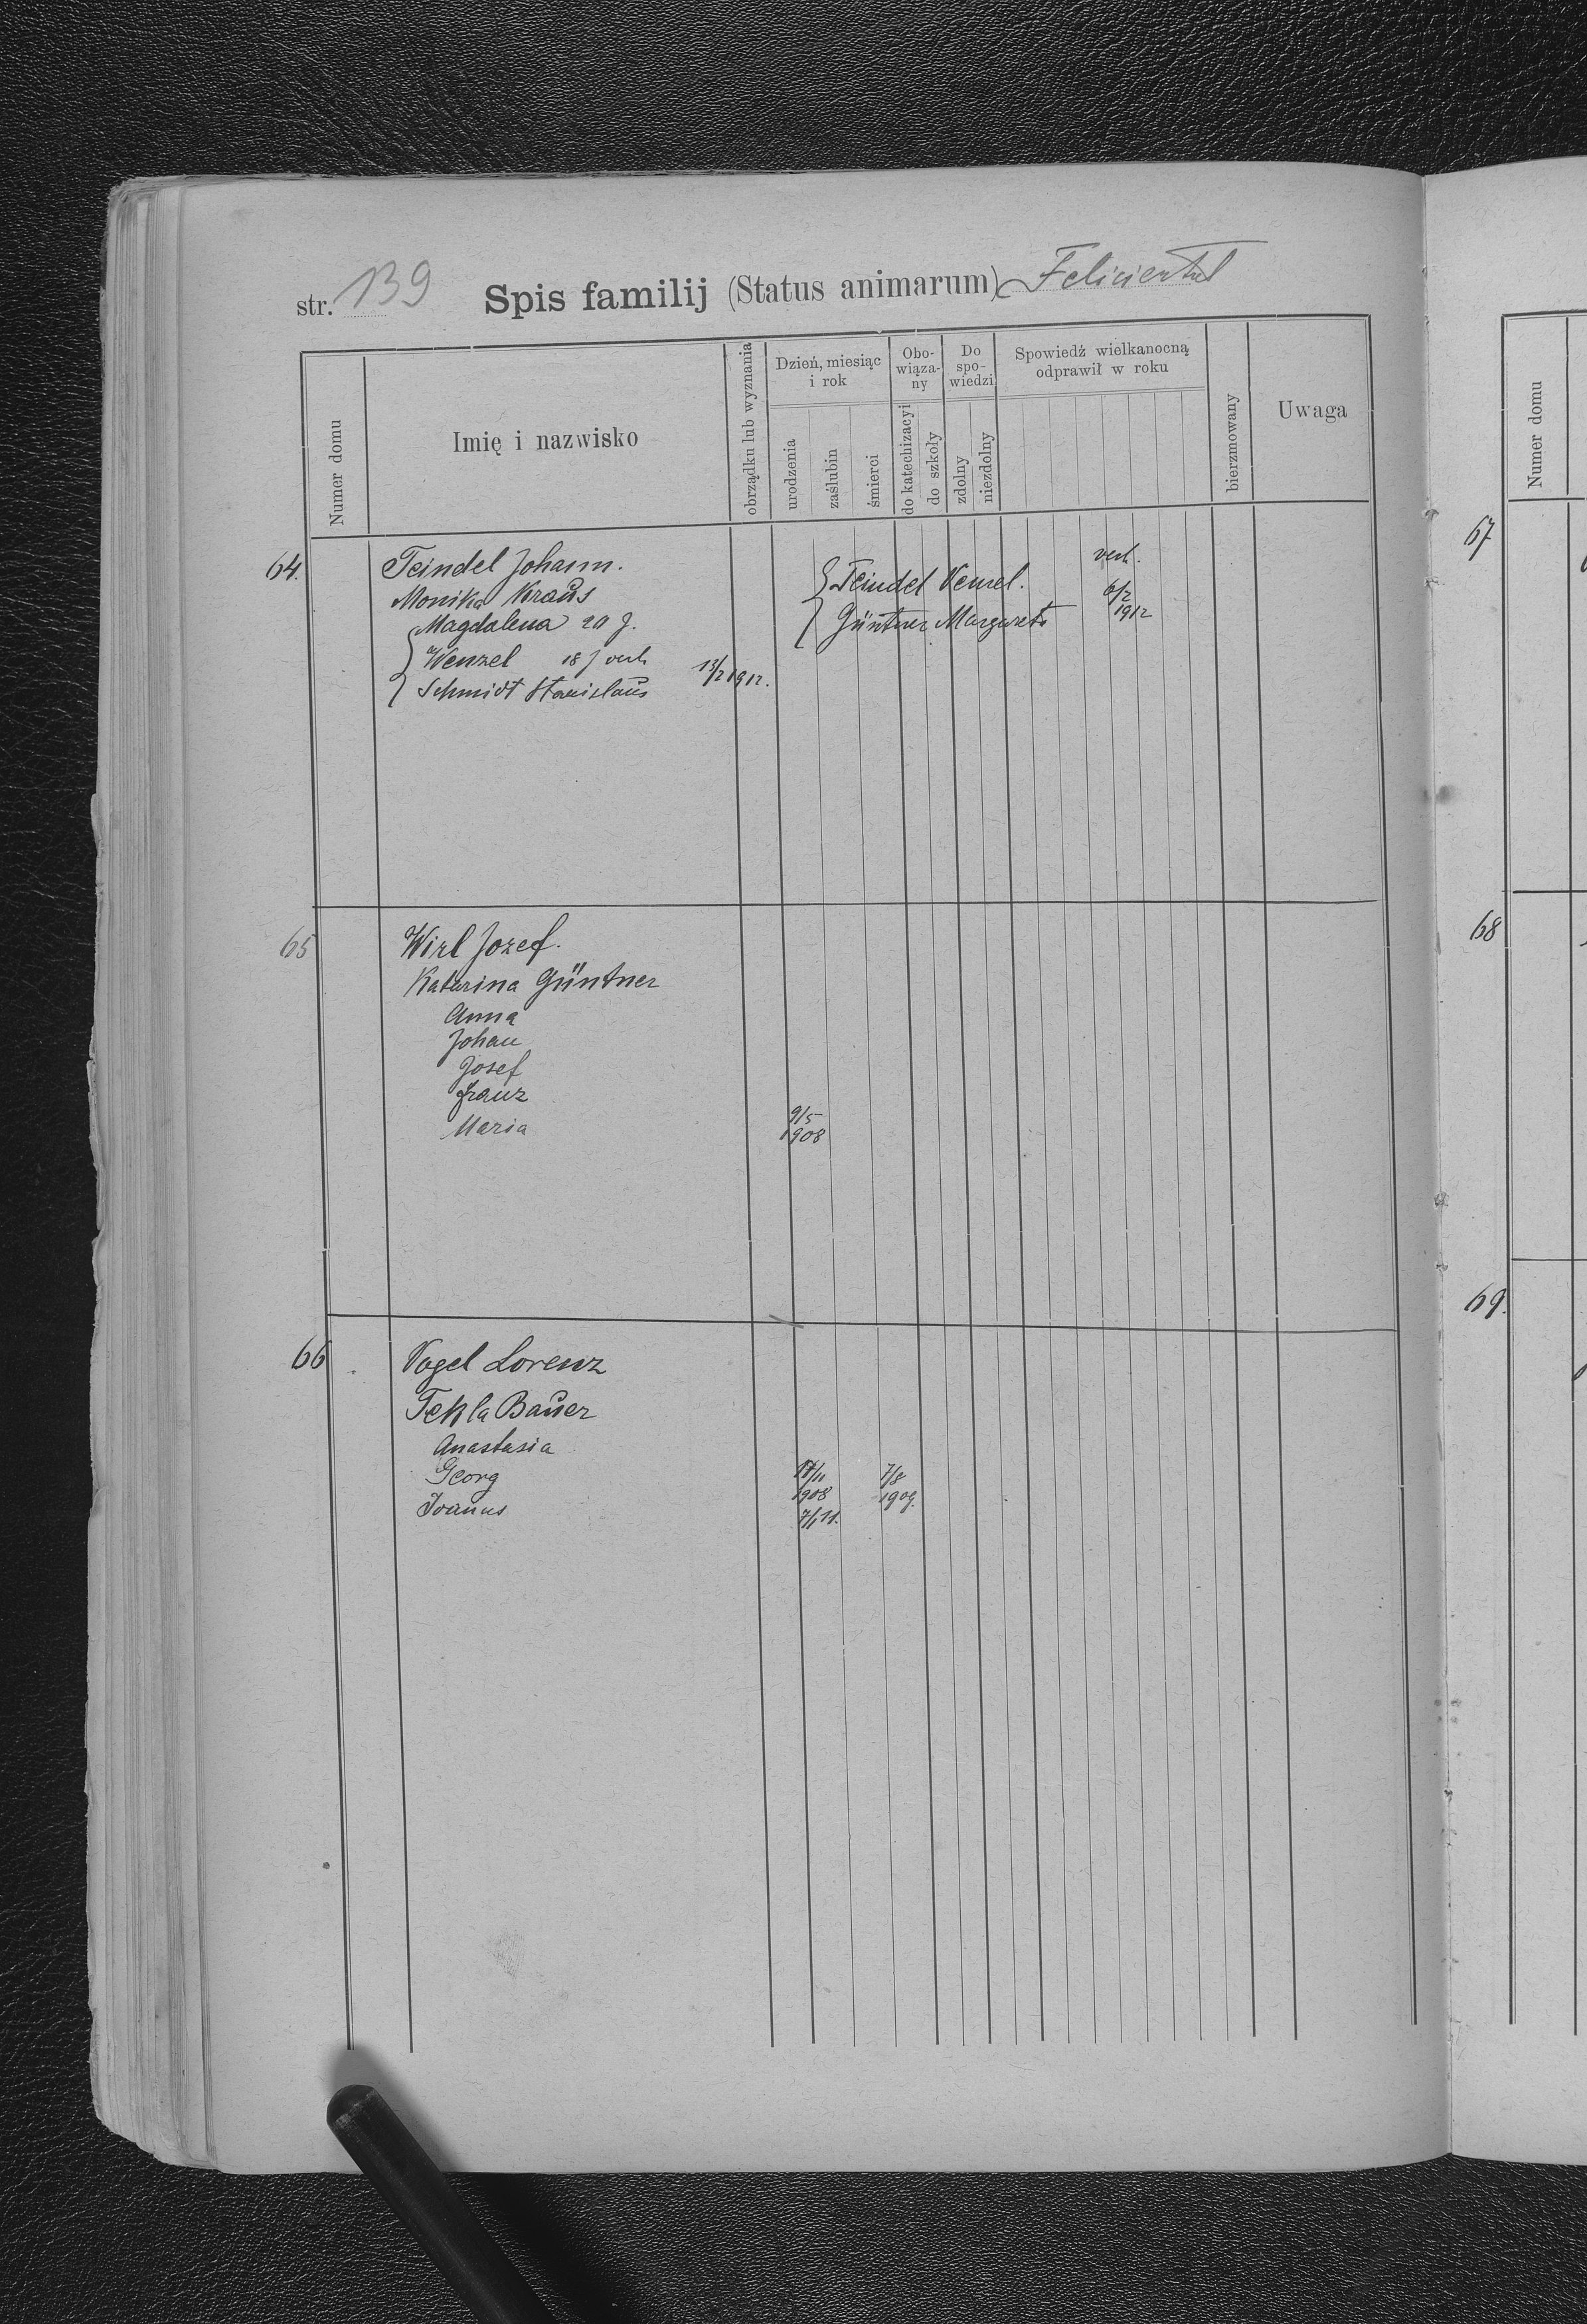 str. 139 Spis familij (Status animarum) Feliciental
Numer domu
Imię i nazwisko
obrządku lub wyznania
Dzień, miesiąc i rok
urodzenia
zaślubin
śmierci
Obo-
wiąza-
ny
do katechizacyi
do szkoły
Do
spo-
wiedzi
zdolny
niezdolny
Spowiedź wielkanocną
odprawił w roku
bierzmowany
Uwaga
Numer domu
64. Teindel Johann.
Monika Kraus
Magdalena 20 J.
Wenzel 18 J verh
Schmidt Stanislaus 13/2 1912.
Teindel Venzel. verh.
Güntner Margareta 6/2 1912
65 Wirl Jozef.
Katarina Güntner
Anna
Johan
Josef
Franz
Maria 9/5 1908
66 Vogel Lorenz
Tekla Bauer
Anastasia
Georg 1908 7/8 1909.
Joanus
67
68
69.